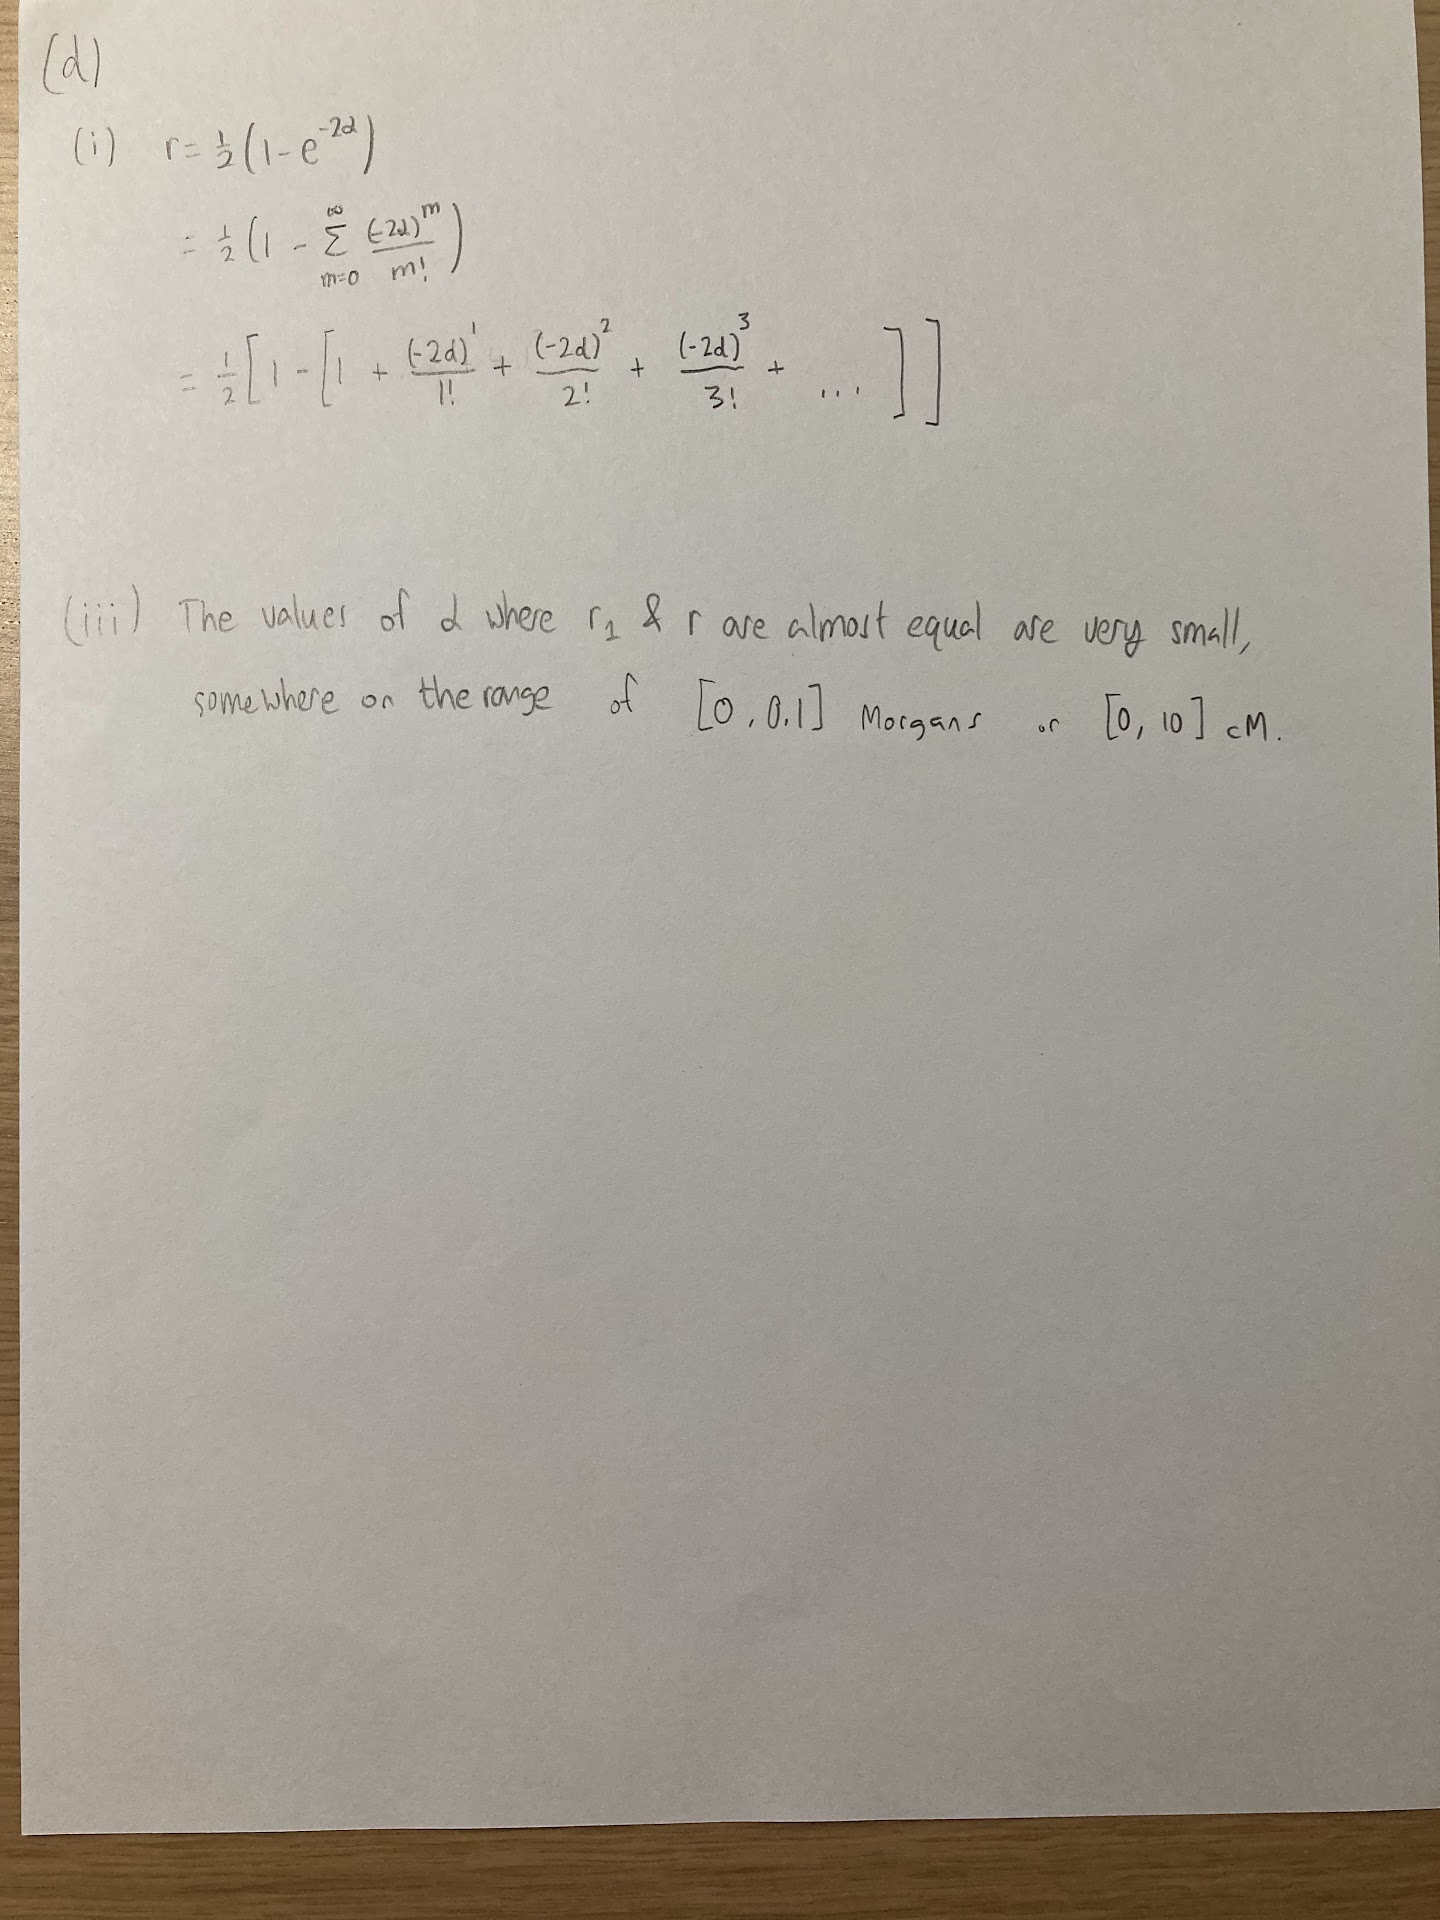 (d)
(i) r = 1/2 (1 - e^{-2d})
= 1/2 (1 - ∑_{m=0}^{∞} (-2d)^m / m!)
= 1/2 [1 - [1 + (-2d)^1 / 1! + (-2d)^2 / 2! + (-2d)^3 / 3! + ... ]]
(iii) The values of d where r_1 & r are almost equal are very small,
somewhere on the range of [0, 0.1] Morgans or [0, 10] cM.